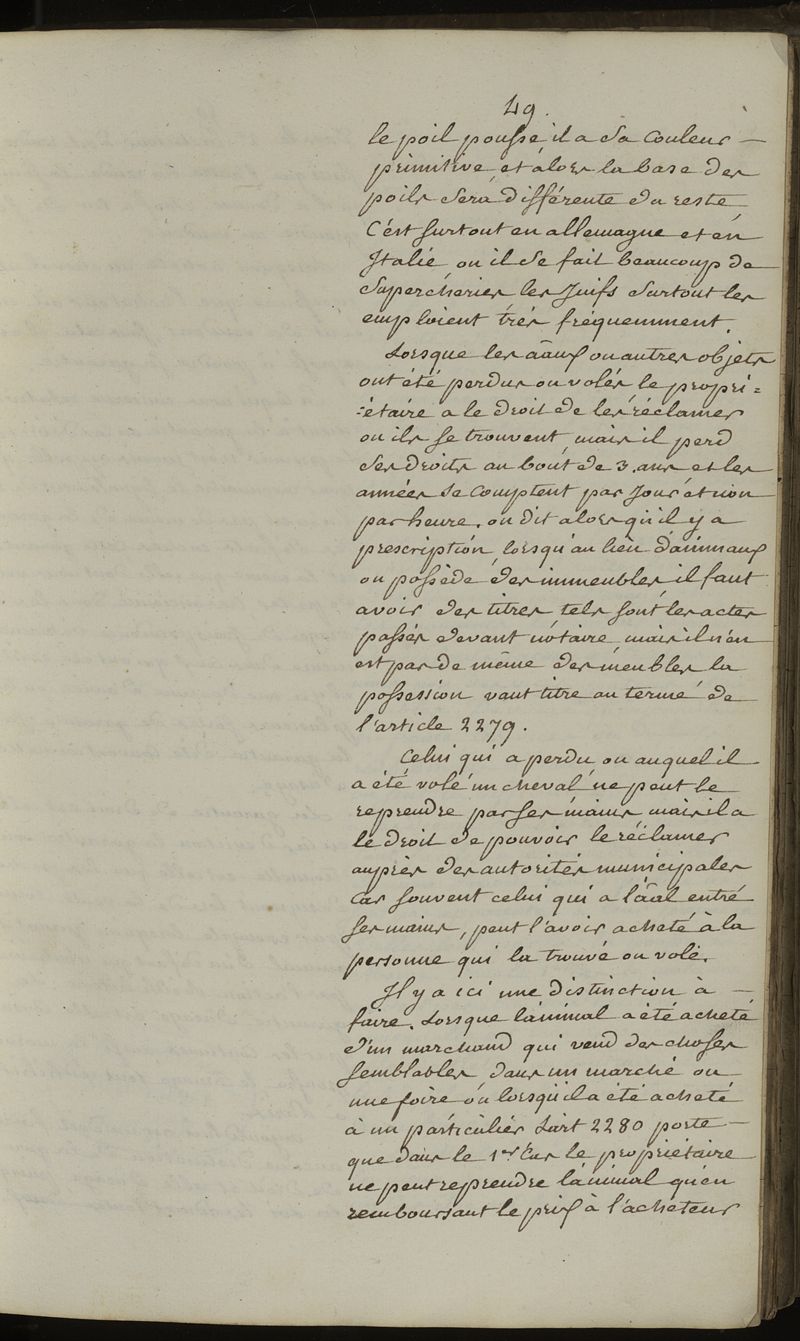 49.
le poil pousse il a sa couleur —
primitive et alors la base des
poils sera différente du reste
C'est surtout en allemagne et en
Italie ou il se fait beaucoup de
supercheries les Juifs surtout les
emploient très fréquemment.
Lorsque les aãux ou autres objets
ont été perdus ou volés le propri=
=étaire a le droit de les réclamer
ou ils se trouvent mais il perd
ses droits au bout de 3. ans et les
années se comptent par jour et non
par heure, on dit alors qu'il y a
prescription, lorsqu'au lieu d'animaux
on possède des immeubles il faut
avoir des titres tels sont les actes
passés devant notaire mais il n'en
est pas de même des meubles la
possession vaut titre au terme de
l'article 2279.
Celui qui a perdu ou auquel il
a été volé un cheval ne peut le
reprendre par ses mains mais il a
le droit de pouvoir le réclamer
auprès des autorités municipales
car souvent celui qui a l'aãl entre
ses mains, peut l'avoir acheté à la
personne qui la trouvé ou volé.
Il y a ici une distinction à —
faire. Lorsque l'animal a été acheté
d'un marchand qui vend des choses
semblables dans un marché ou
une foire ou lorsqu'il a été acheté
à un particulier L'art 2280 porte —
que dans le 1er Cas le propriétaire
ne peut reprendre l'animal qu'en
remboursant le prix à l'acheteur